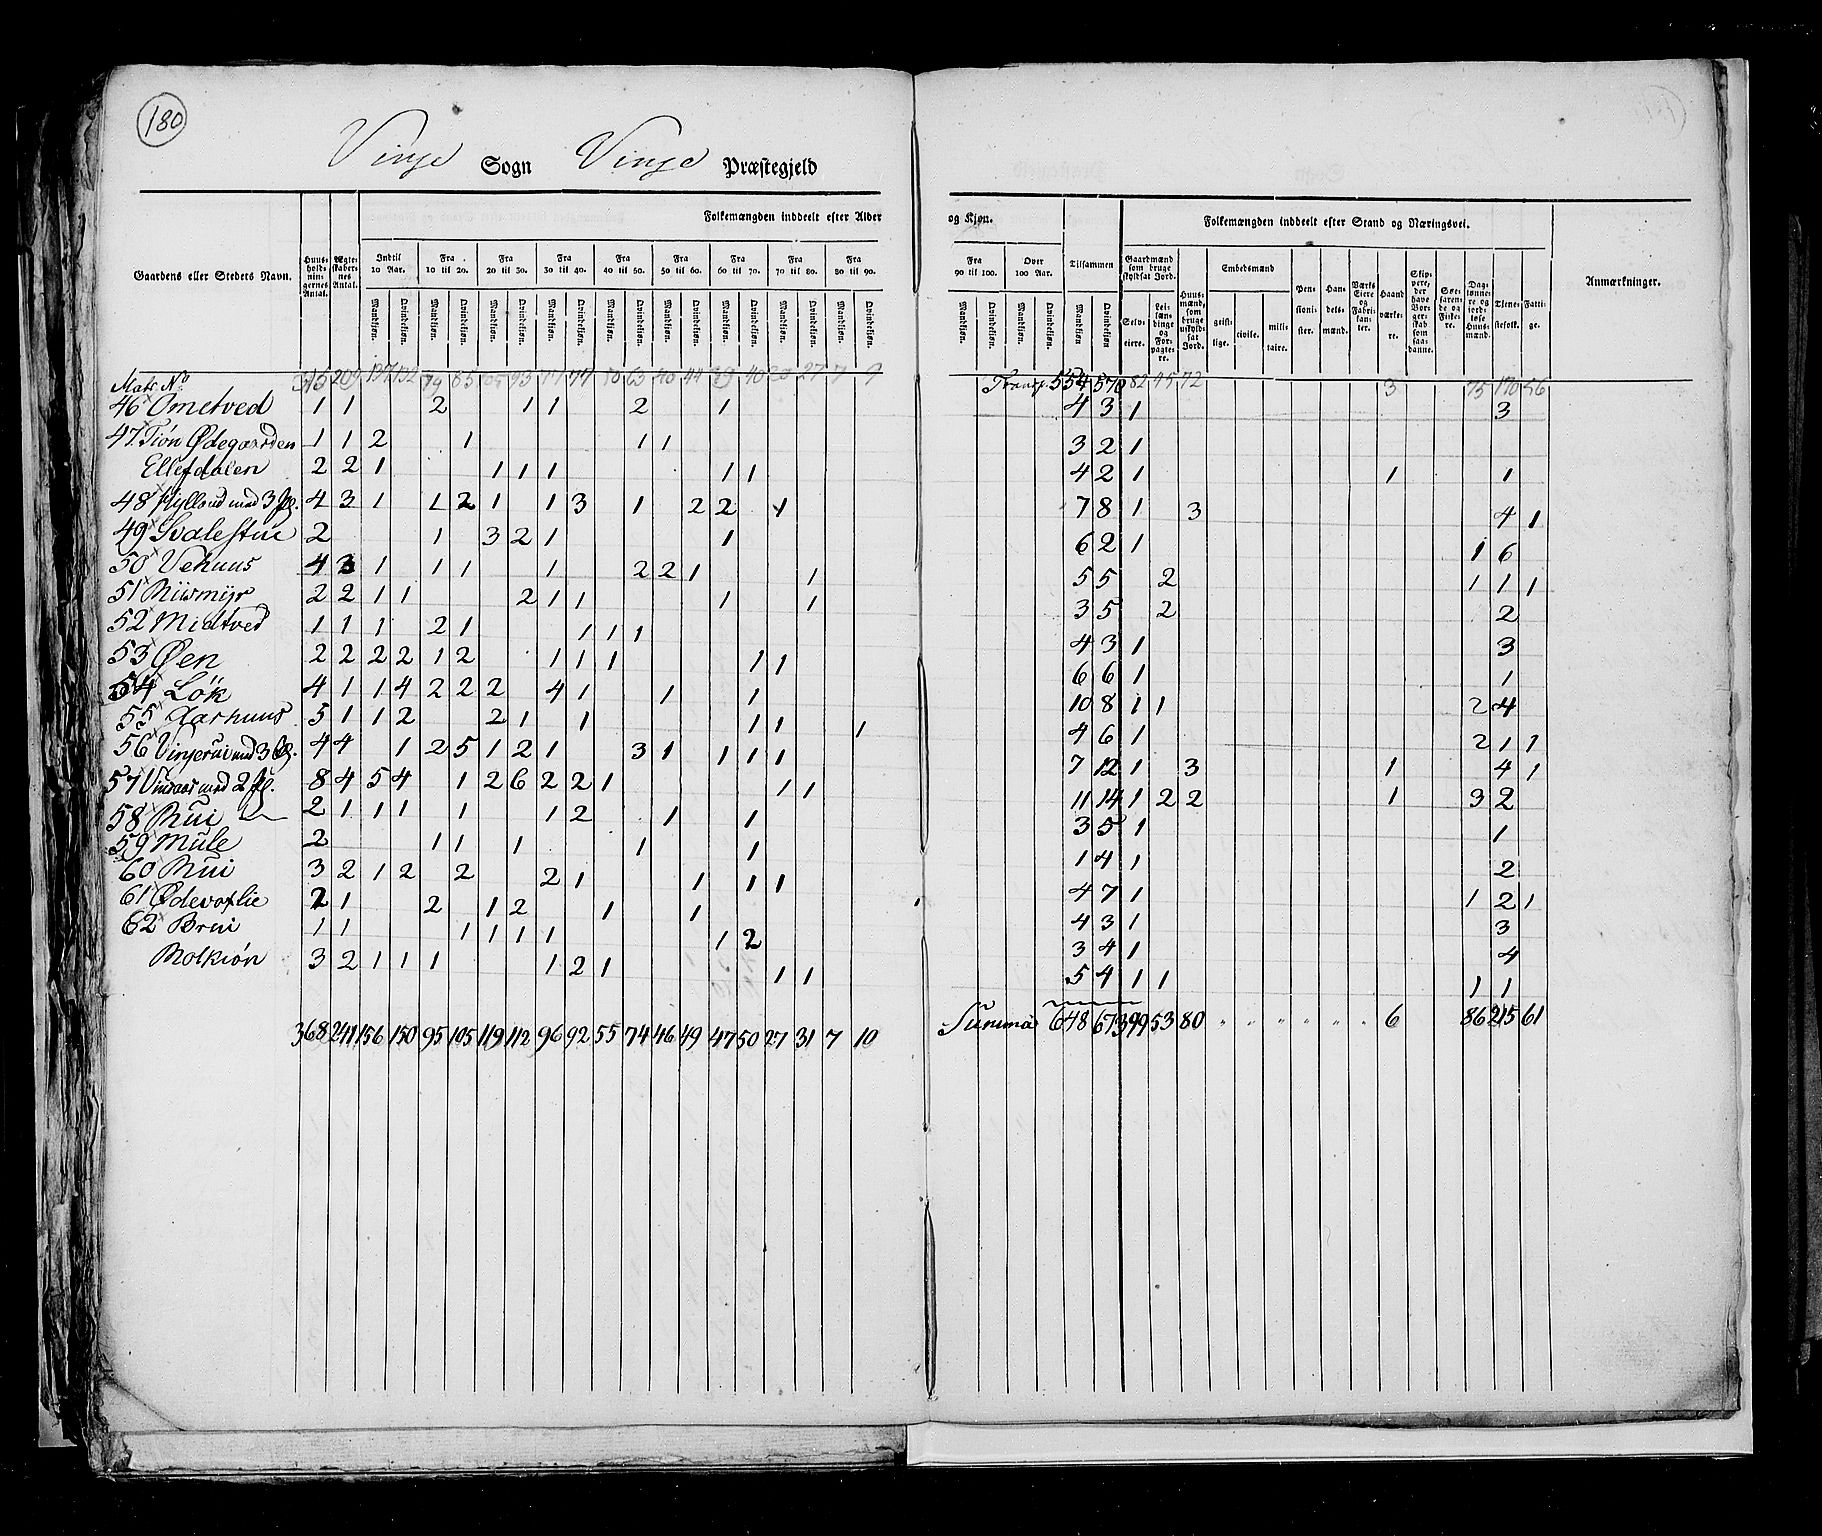 180
Vinje Sogn Vinje Præstegjeld
Folkemængden inddeelt efter Alder og Kjøn.
Folkemængden inddeelt efter Stand og Næringsvei.
Gaardens eller Stedets Navn.
Huusholdningernes Antal.
Ægteskabernes Antal.
Indtil 10 Aar. Fra 10 til 20. Fra 20 til 30. Fra 30 til 40. Fra 40 til 50. Fra 50 til 60. Fra 60 til 70. Fra 70 til 80. Fra 80 til 90. Fra 90 til 100. Over 100 Aar. Tilsammen
Mandkjøn. Qvindekjøn.
Gaardmænd som bruge skyldsat Jord.
Selveiere. Leilændinge og Forpagtere.
Huusmænd, som bruge uskyldsat Jord.
Embedsmænd
geistlige. civile. militaire.
Pensionister. Handelsmænd. Værks Eiere og Fabrikanter. Haandværkere. Skippere, der have Borgerskab som saadanne. Søefarende og Fiskere. Dagslønnere og jordløse Huusmænd. Tjenestefolk. Fattige.
Anmærkninger.
Matr. No 209 137 132 79 85 93 77 77 50 63 40 44 39 40 20 27 7 9 Transp. 554 570 82 45 72 3 75 170 56
46 Ometved 1 1 2 1 1 2 1 4 3 1 3
47 Tiön Ødegaarden 1 1 2 1 1 1 3 2 1
Ellefdalen 2 2 1 1 1 1 1 1 4 2 1 1 1
48 Hylland med 3 pl. 4 3 1 1 2 1 1 3 1 2 2 1 7 8 1 3 4 1
49 Svalestue 2 1 3 2 1 1 6 2 1 1 6
50 Vehuus 4 3 1 1 1 1 2 2 1 1 5 5 2 1 1 1
51 Miismyr 2 2 1 1 2 1 1 1 1 3 5 2 2
52 Midtved 1 1 1 2 1 1 1 1 4 3 1 3
53 Øen 2 2 2 2 1 2 1 1 1 1 1 6 6 1 1
54 Lök 4 1 1 4 2 2 2 4 1 1 1 10 8 1 1 2 4
55 Aarhuus 5 1 1 2 2 1 1 1 1 1 4 6 1 2 1 1
56 Vinjerui med 3 pl. 4 4 1 2 5 1 2 1 3 1 1 1 1 7 12 1 3 1 4 1
57 Vinaas med 2 pl. 8 4 5 4 1 2 6 2 2 1 1 1 11 14 1 2 2 1 3 2
58 Rui 2 1 1 1 1 1 2 1 1 3 5 1 1
59 Mule 2 1 1 1 1 1 1 4 1 2
60 Rui 3 2 1 2 2 2 1 1 1 1 4 7 1 1 2 1
61 Ødevaslie 2 1 2 1 2 1 1 4 3 1 3
62 Brui 1 1 1 1 1 1 1 2 3 4 1 4
Botkiön 3 2 1 1 1 1 2 1 1 1 5 4 1 1 1 1
368 241 156 150 95 105 119 112 96 92 55 74 46 49 47 50 27 31 7 10 Summa 648 673 99 53 80 " " " " " " 6 86 215 61